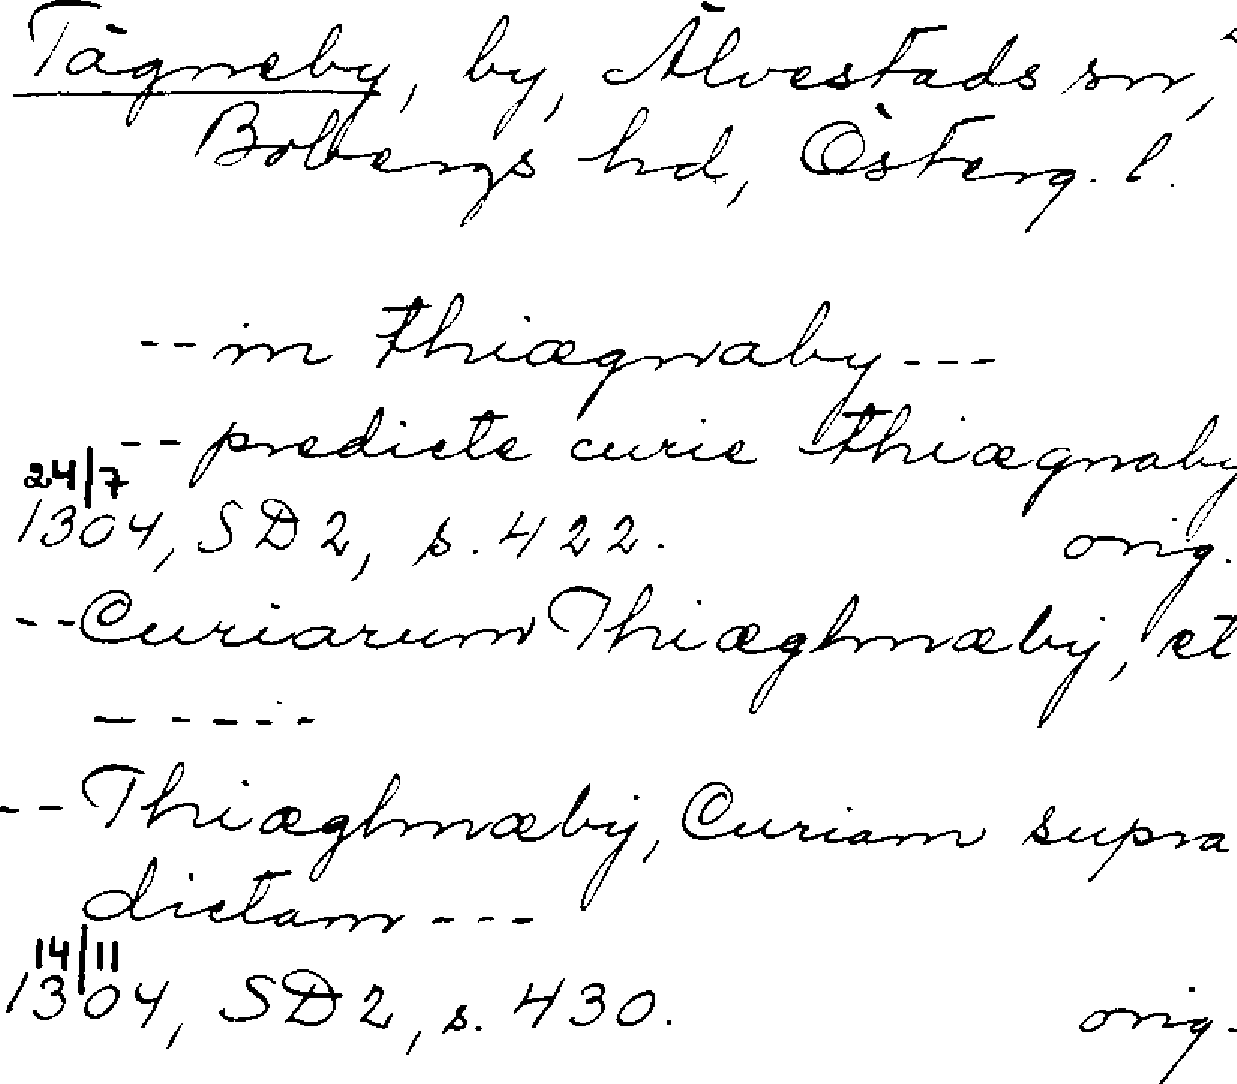 Tägneby, by, Älvestads sn,
Bobergs hd, Österg. l.
-- in thiægnaby ---
-- predicte curie thiægnaby
24/7
1304, SD2, s. 422. orig.
-- Curiarum Thiæghnæby, et
-----
-- Thiæghnæby, Curiam supra
dictam ---
14/11
1304, SD2, s. 430. orig.